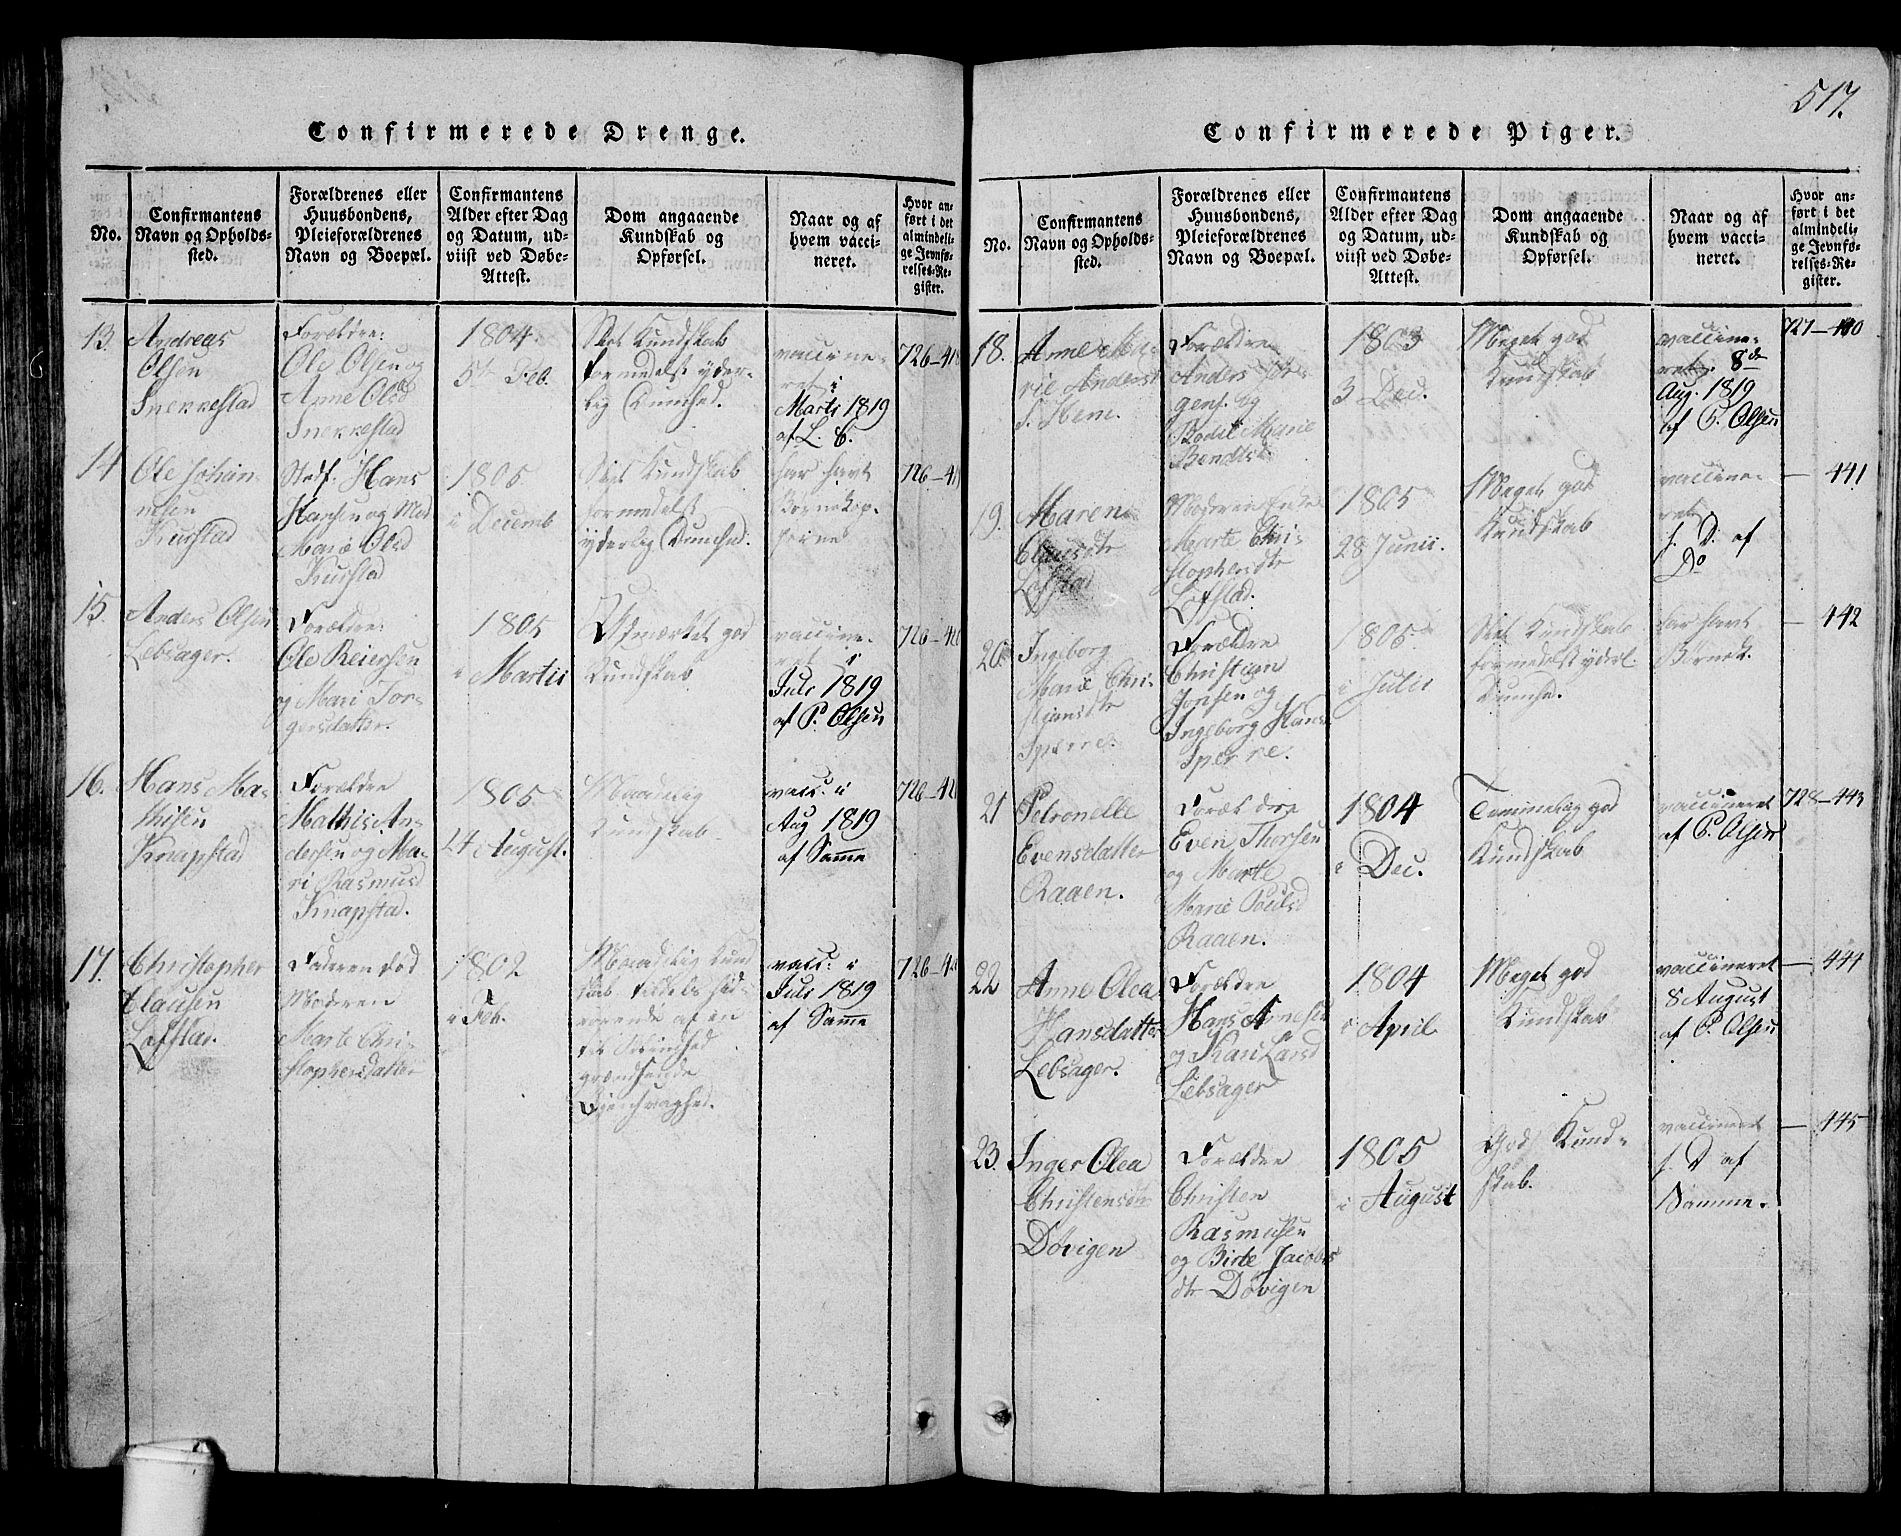 517.
Confirmerede Drenge.
No.
Confirmantens
Navn og Opholds-
sted.
Forældrenes eller
Huusbondens,
Pleieforældrenes
Navn og Boepæl.
Confirmantens
Alder efter Dag
og Datum, ud-
viist ved Døbe-
Attest.
Dom angaaende
Kundskab og
Opførsel.
Naar og af
hvem vacci-
neret.
Hvor an-
ført i det
almindeli-
ge Jevnfø-
relses-Re-
gister.
13.
Andreas
Olsen
Snekkestad
Forældre:
Ole Olsen og
Anne Olsd
Snekkestad
1804
5te Feb.
Slet Kundskab
formedelst yder-
lig
vaccine-
ret i
Marts 1819
af L. C.
726-41
14
Ole Johan-
nesen
Kurstad
Stedf: Hans
Hansen og Mod
Marie Olsd
Kurstad
1805
i Decemb
Slet Kundskab
formedelst
yderlig
har havt
Børnekop-
perne
726-41
15.
Anders Olsen
Lebsager.
Forældre:
Ole Reiersen
og Mari Tor-
gersdatter.
1805
i Martii
Udmærket god
Kundskab
vaccine-
ret i
Juli 1819
af P. Olsen
726-42
16.
Hans Ma-
thisen
Knapstad
Forældre
Mathis An-
dersen og Ma-
ri Rasmusd
Knapstad.
1805
24 August.
Maadelig
Kundskab
vacc: i
Aug 1819
af Samme
726-42
17.
Christopher
Clausen
Løfstad.
Faderen død
Moderen
Marte Chri-
stophersdatter
1802
i Feb.
Maadelig Kund
skab
af en
til
grændsende
vacc: i
Juli 1819
af Samme
726-42
Confirmerede Piger.
No.
Confirmantens
Navn og Opholds-
sted.
Forældrenes eller
Huusbondens,
Pleieforældrenes
Navn og Boepæl.
Confirmantens
Alder efter Dag
og Datum, ud-
viist ved Døbe-
Attest.
Dom angaaende
Kundskab og
Opførsel.
Naar og af
hvem vacci-
neret.
Hvor an-
ført i det
almindeli-
ge Jevnfø-
relses-Re-
gister.
18.
Anne Ma-
rie Andersd
Forældre
Anders Jør-
gens. og
Bodil Marie
Bendtsd
1803
3 Dec.
Meget god
Kundskab
vaccine-
ret 8de
Aug. 1819
af P. Olsen
727-440
19.
Maren
Clausdtr
Løfstad
Moderen Enke
Marte Chri-
stophersdtr
Løfstad.
1805
28 Junii.
Meget god
Kundskab
vaccine-
ret
s. D. af
Do
— 441
20.
Ingeborg
Marie Chri-
stiansdtr
Sperre.
Forældre
Christian
Jonsen og
Ingeborg Hans
Sperre.
1805
i Julii
Slet Kundskab
formedelst yderl.
har havt
Børnek.
— 442
21
Petronelle
Evensdatter
Raaen.
Forældre
Even Thorsen
og Marte
Marie Poulsd
Raaen.
1804
i Dec.
Temmelig god
Kundskab
vaccineret
af P. Olsen
728-443
22
Anne Olea
Hansdatter
Lebsager.
Forældre
Hans Arnesen
og Kari Larsd
Lebsager
1804
i April
Meget god
Kundskab
vaccineret
8 August
af P. Olsen
— 444
23.
Inger Olea
Christensdtr
Døvigen
Forældre
Christen
Rasmussen
og Birte Jacobs
dtr Døvigen
1805
i August
God Kund-
skab.
vaccineret
s. D af
Samme.
— 445